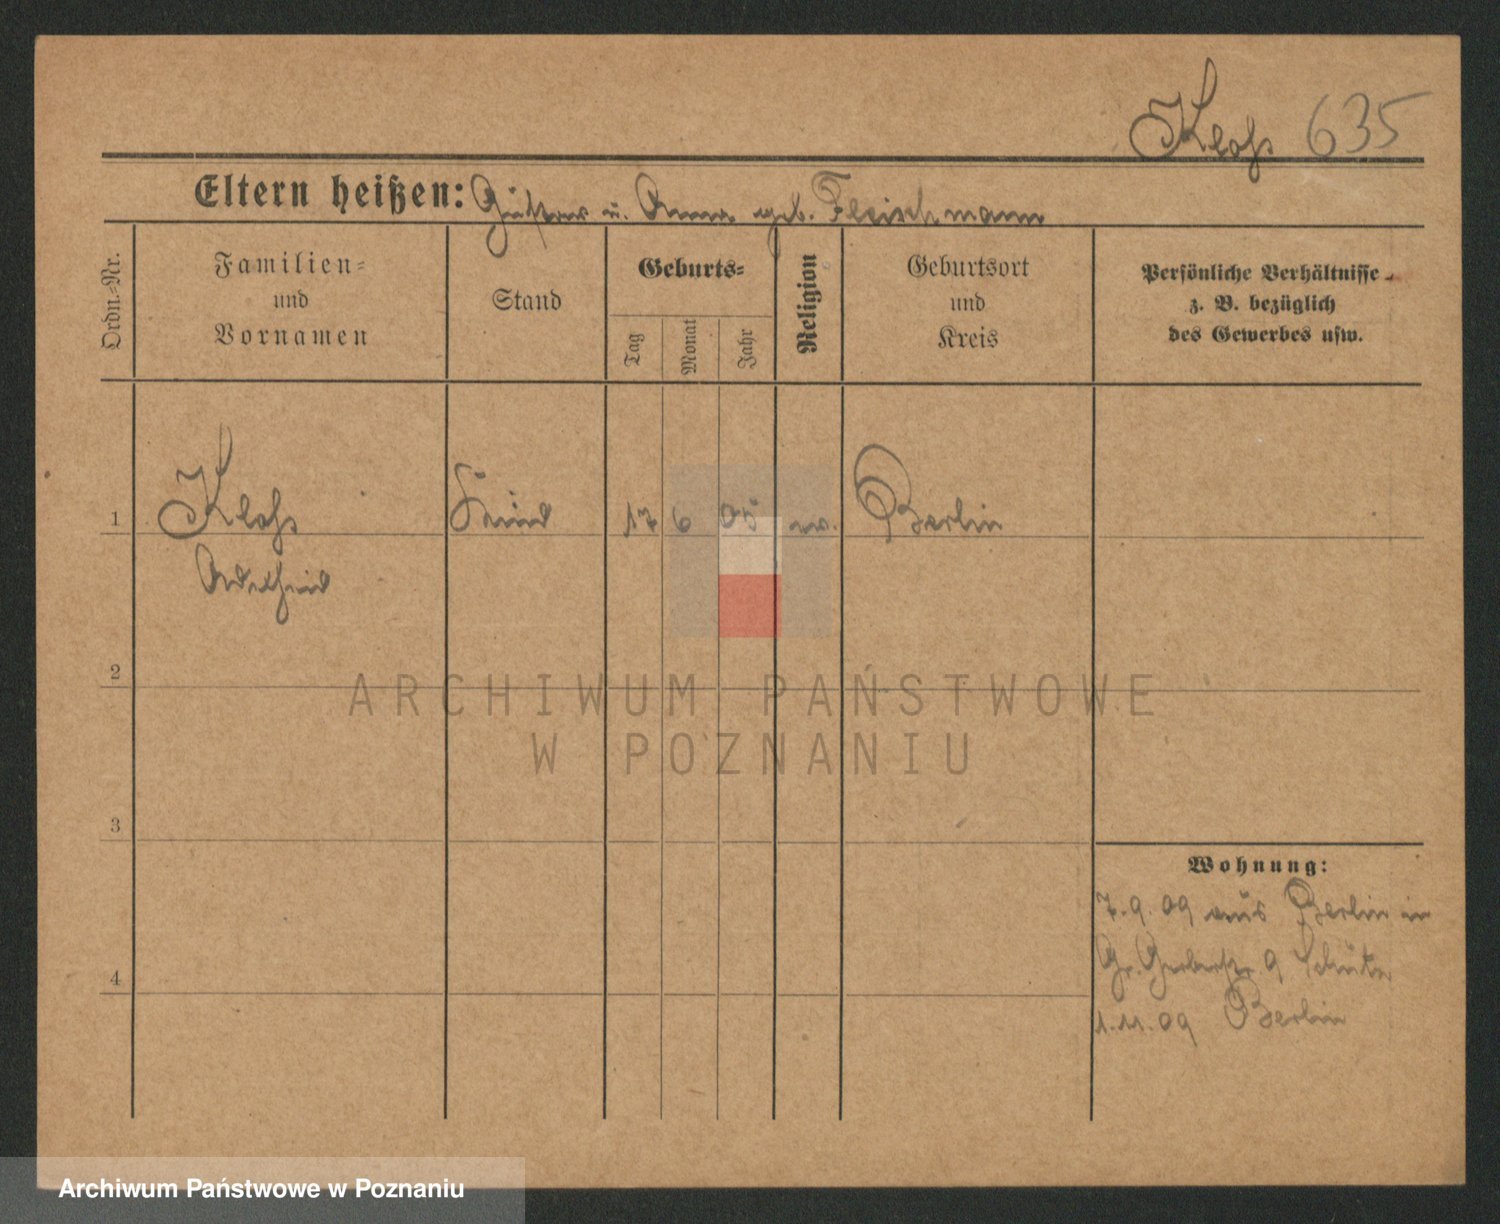 Kloß 635
Eltern heißen: Gustav u. Anna geb. Fleischmann
Ordn.-Nr.
Familien-
und
Vornamen
Stand
Geburts-
Tag
Monat
Jahr
Religion
Geburtsort
und
Kreis
Persönliche Verhältnisse
z. B. bezüglich
des Gewerbes usw.
1 Kloß Kind 17 6 05 ev. Berlin
Adelheid
2
ARCHIWUM PAŃSTWOWE
W POZNANIU
3
Wohnung:
7.9.09 aus Berlin in
Gr. Gerberstr. 9
4
1.11.09 Berlin
Archiwum Państwowe w Poznaniu